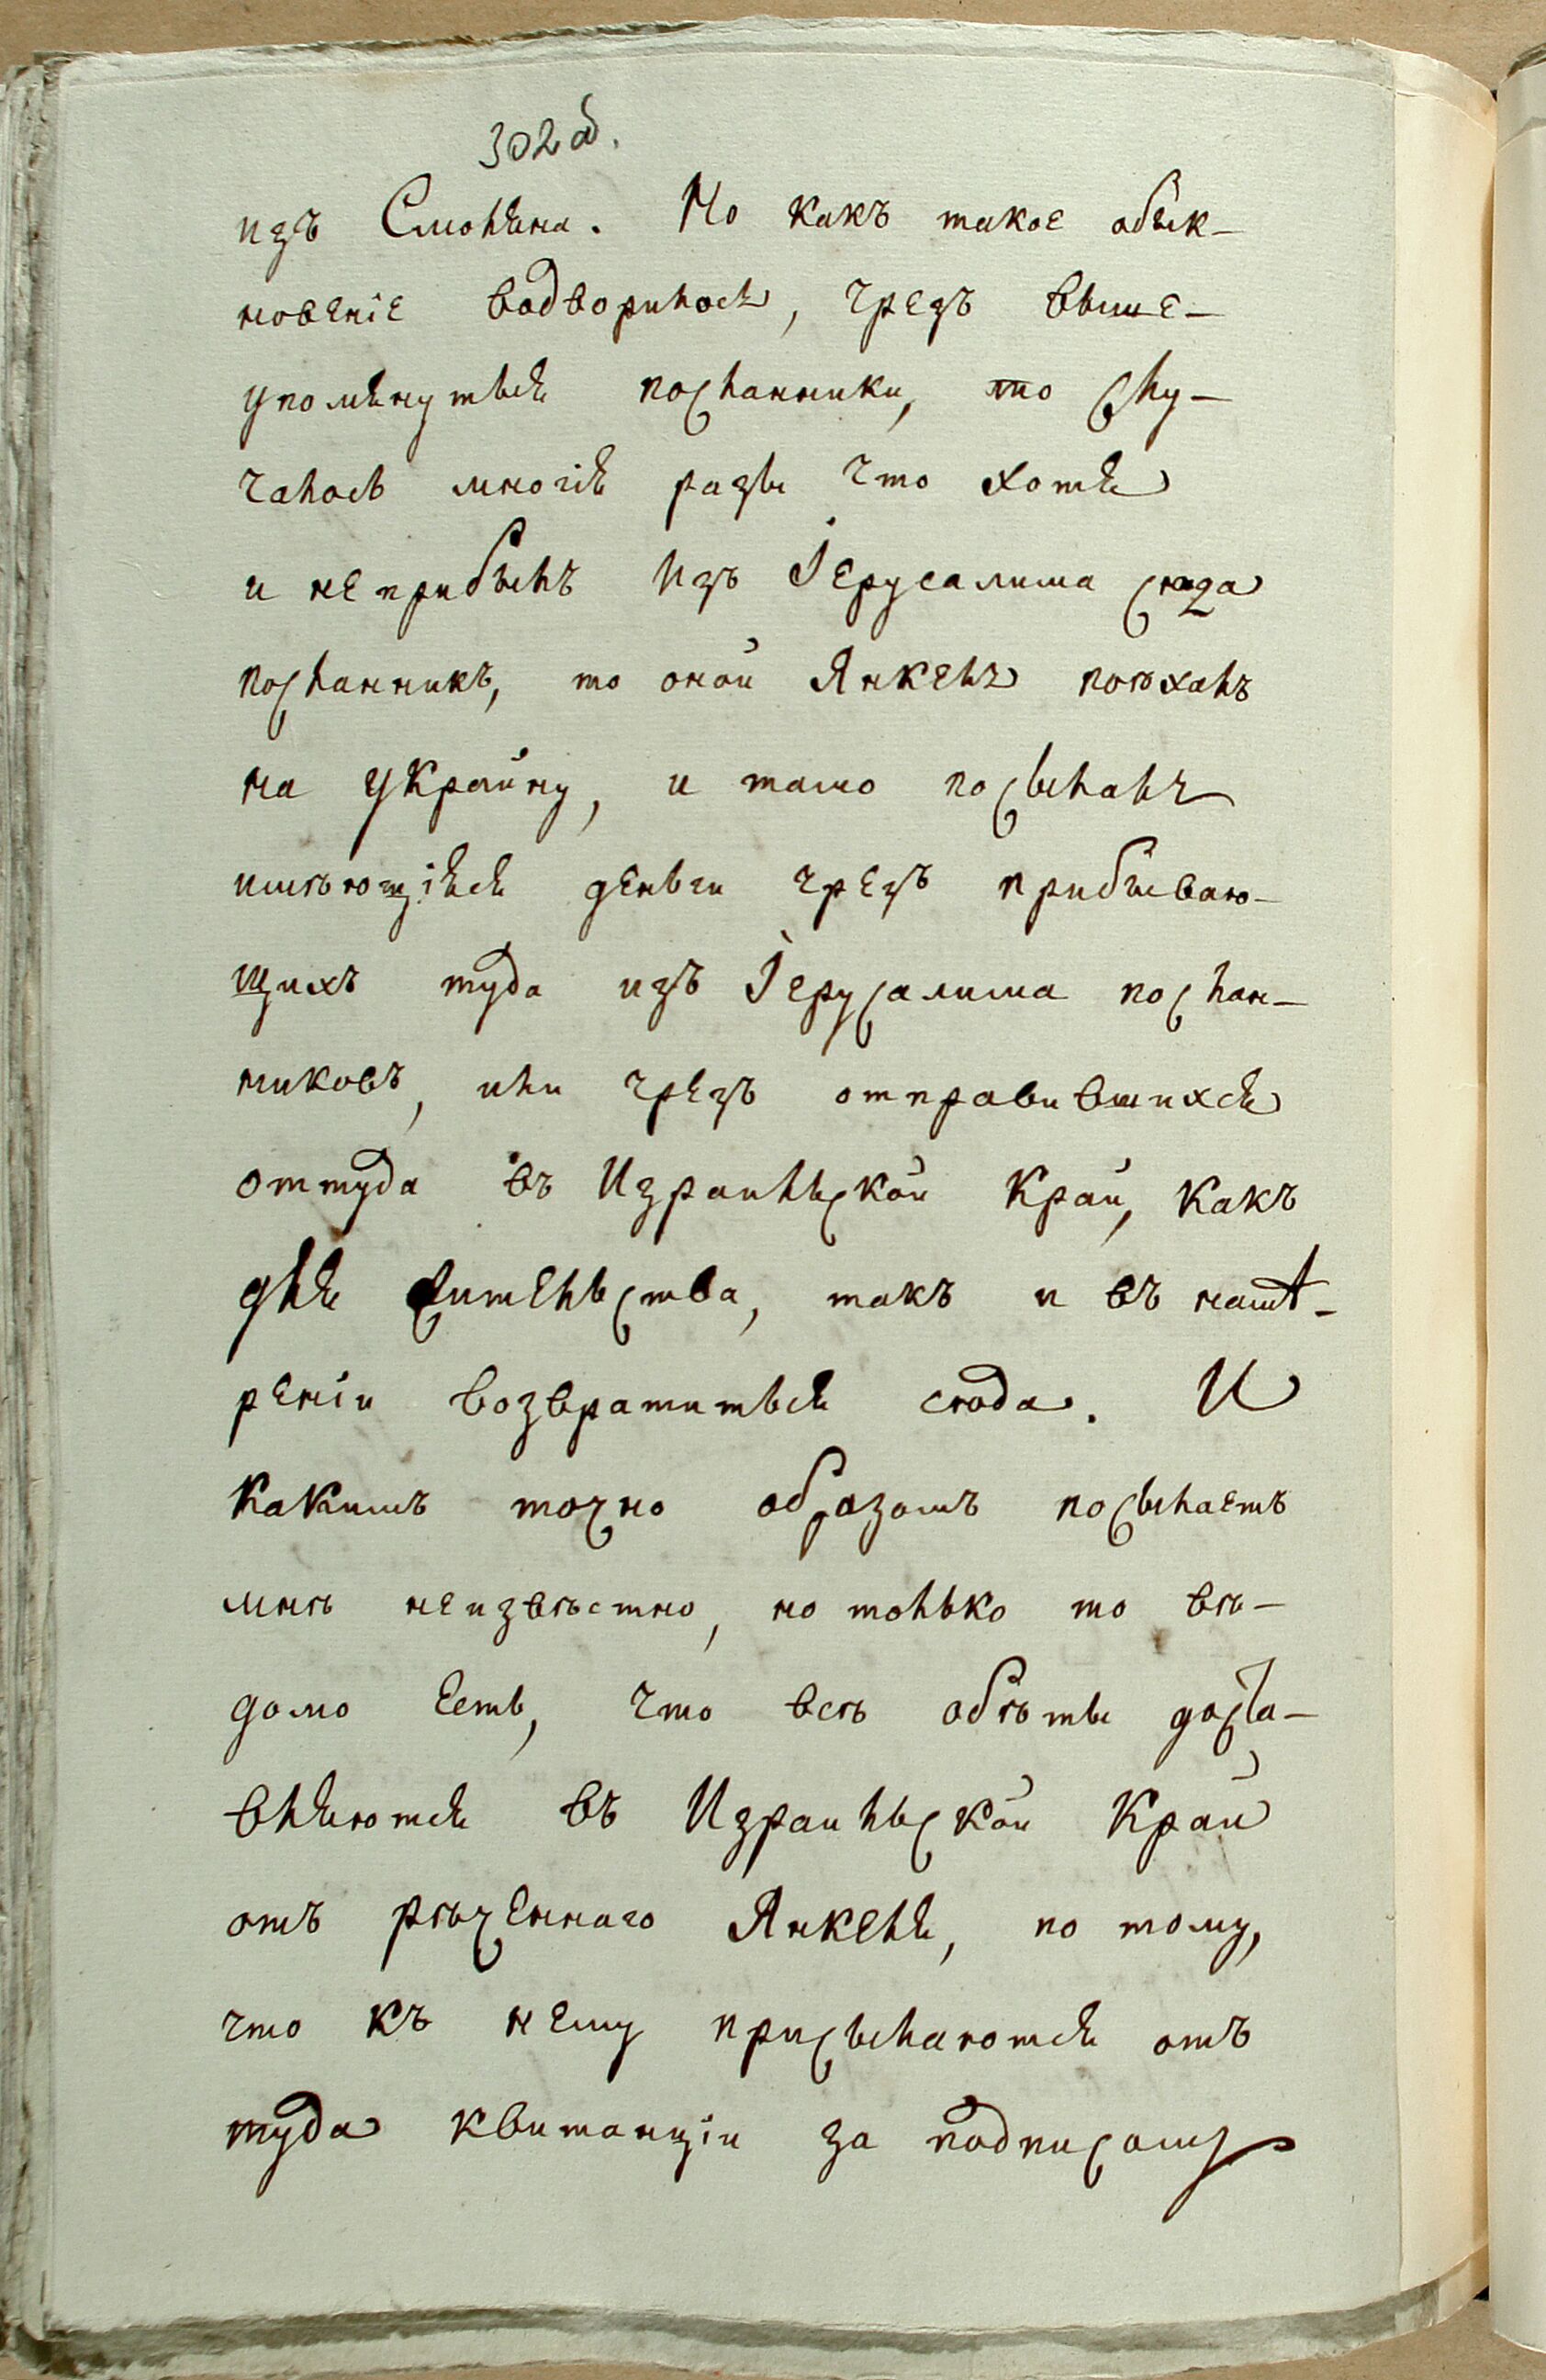 302 об.
изъ Смольяна. Но какъ такое обык-
новенiе водворилось, чрезъ выше-
упомянутыя посланники, то слу-
чалось многiя разы что хотя
и неприбылъ изъ Iерусалима сюда
посланникъ, то оной Янкель поѣхалъ
на Украйну, и тамо посылалъ
имѣющiяся деньги чрезъ прибываю-
щихъ туда изъ Iерусалима послан-
никовъ, или чрезъ отправившихся
оттуда въ Израильской Край, какъ
для жительства, такъ и въ намѣ-
ренiи возвратиться сюда. И
какимъ точно образомъ посылаетъ
мнѣ неизвѣстно, но только то вѣ-
домо есть, что всѣ обѣты доста-
вляются въ Израильской Край
отъ рѣченнаго Янкеля, по тому,
что къ нему присылаются отъ
туда квитанцiи за подписомъ